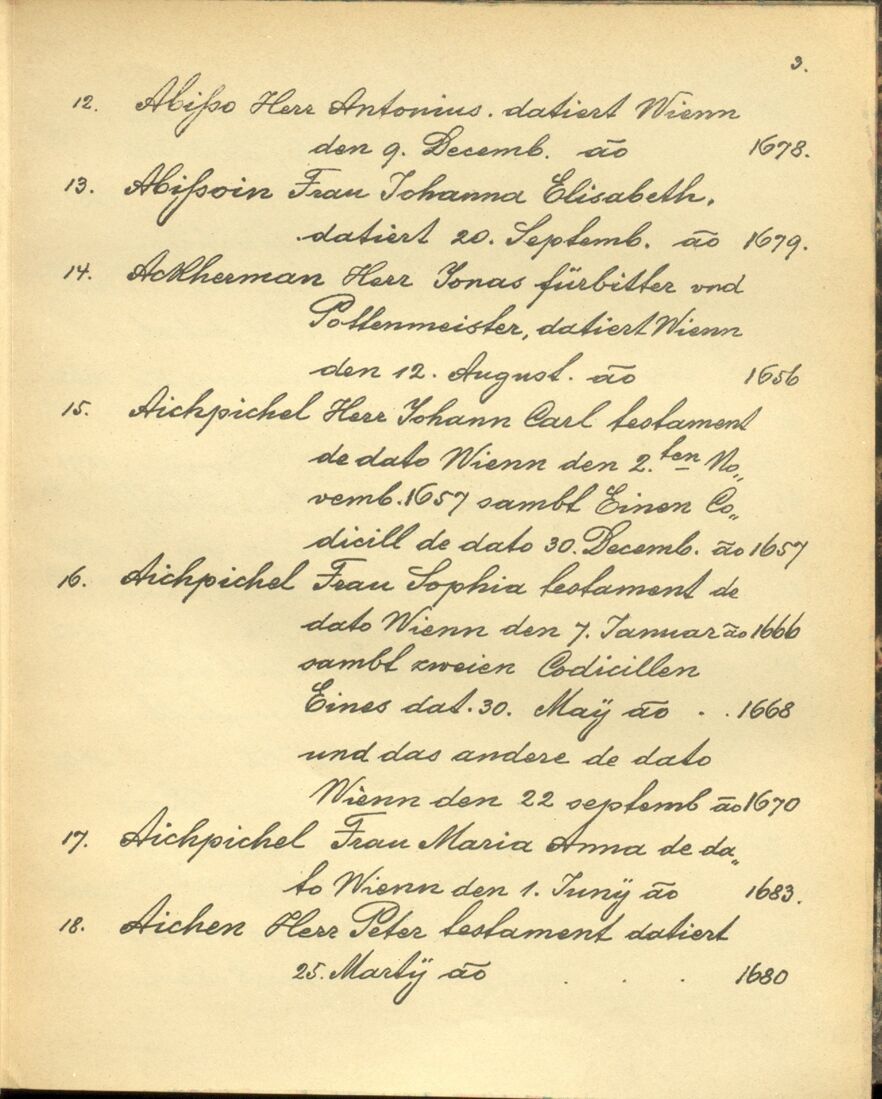 3.
12. Abißo Herr Antonius. datiert Wienn
den 9. Decemb. ão 1678.
13. Abißoin Frau Johanna Elisabeth,
datiert 20. Septemb. ão 1679.
14. Ackherman Herr Jonas fürbitter vnd
Pottenmeister, datiert Wienn
den 12. August. ão 1656
15. Aichpichel Herr Johann Carl testament
de dato Wienn den 2.ten No„
vemb. 1657 sambt Einen Co„
dicill de dato 30. Decemb. ão 1657
16. Aichpichel Frau Sophia testament de
dato Wienn den 7. Januar ão 1666
sambt zweien Codicillen
Eines dat. 30. Maÿ ão . . 1668
und das andere de dato
Wienn den 22 septemb ão 1670
17. Aichpichel Frau Maria Anna de da„
to Wienn den 1. Junÿ ão 1683.
18. Aichen Herr Peter testament datiert
25. Martÿ ão . . . 1680